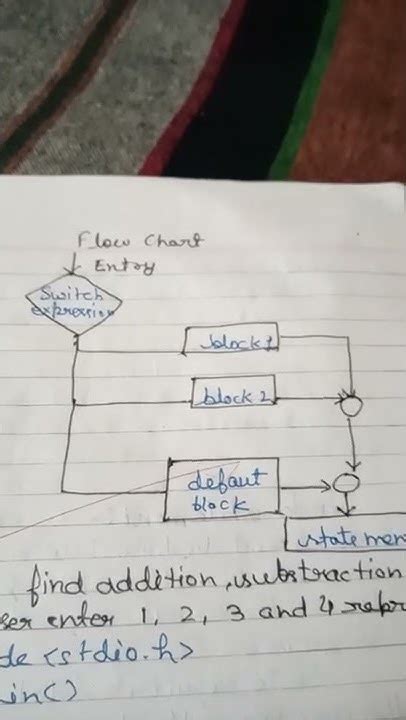 Flow Chart
Entry
Switch
expression
block 1
block 2
defaut
block
statemen
find addition, substraction
ser enter 1, 2, 3 and 4 repr
de <stdio.h>
in()